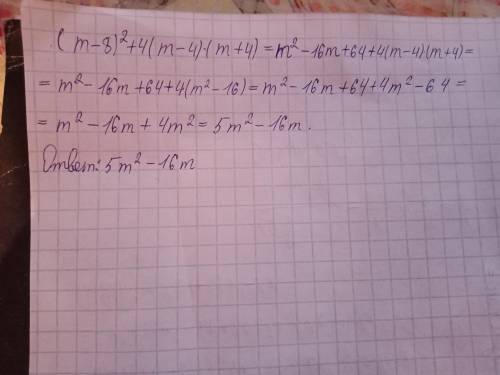 (m-8)²+4(m-4)·(m+4)=m²-16m+64+4(m-4)(m+4)=
=m²-16m+64+4(m²-16)=m²-16m+64+4m²-64=
=m²-16m+4m²=5m²-16m.
Ответ: 5m²-16m